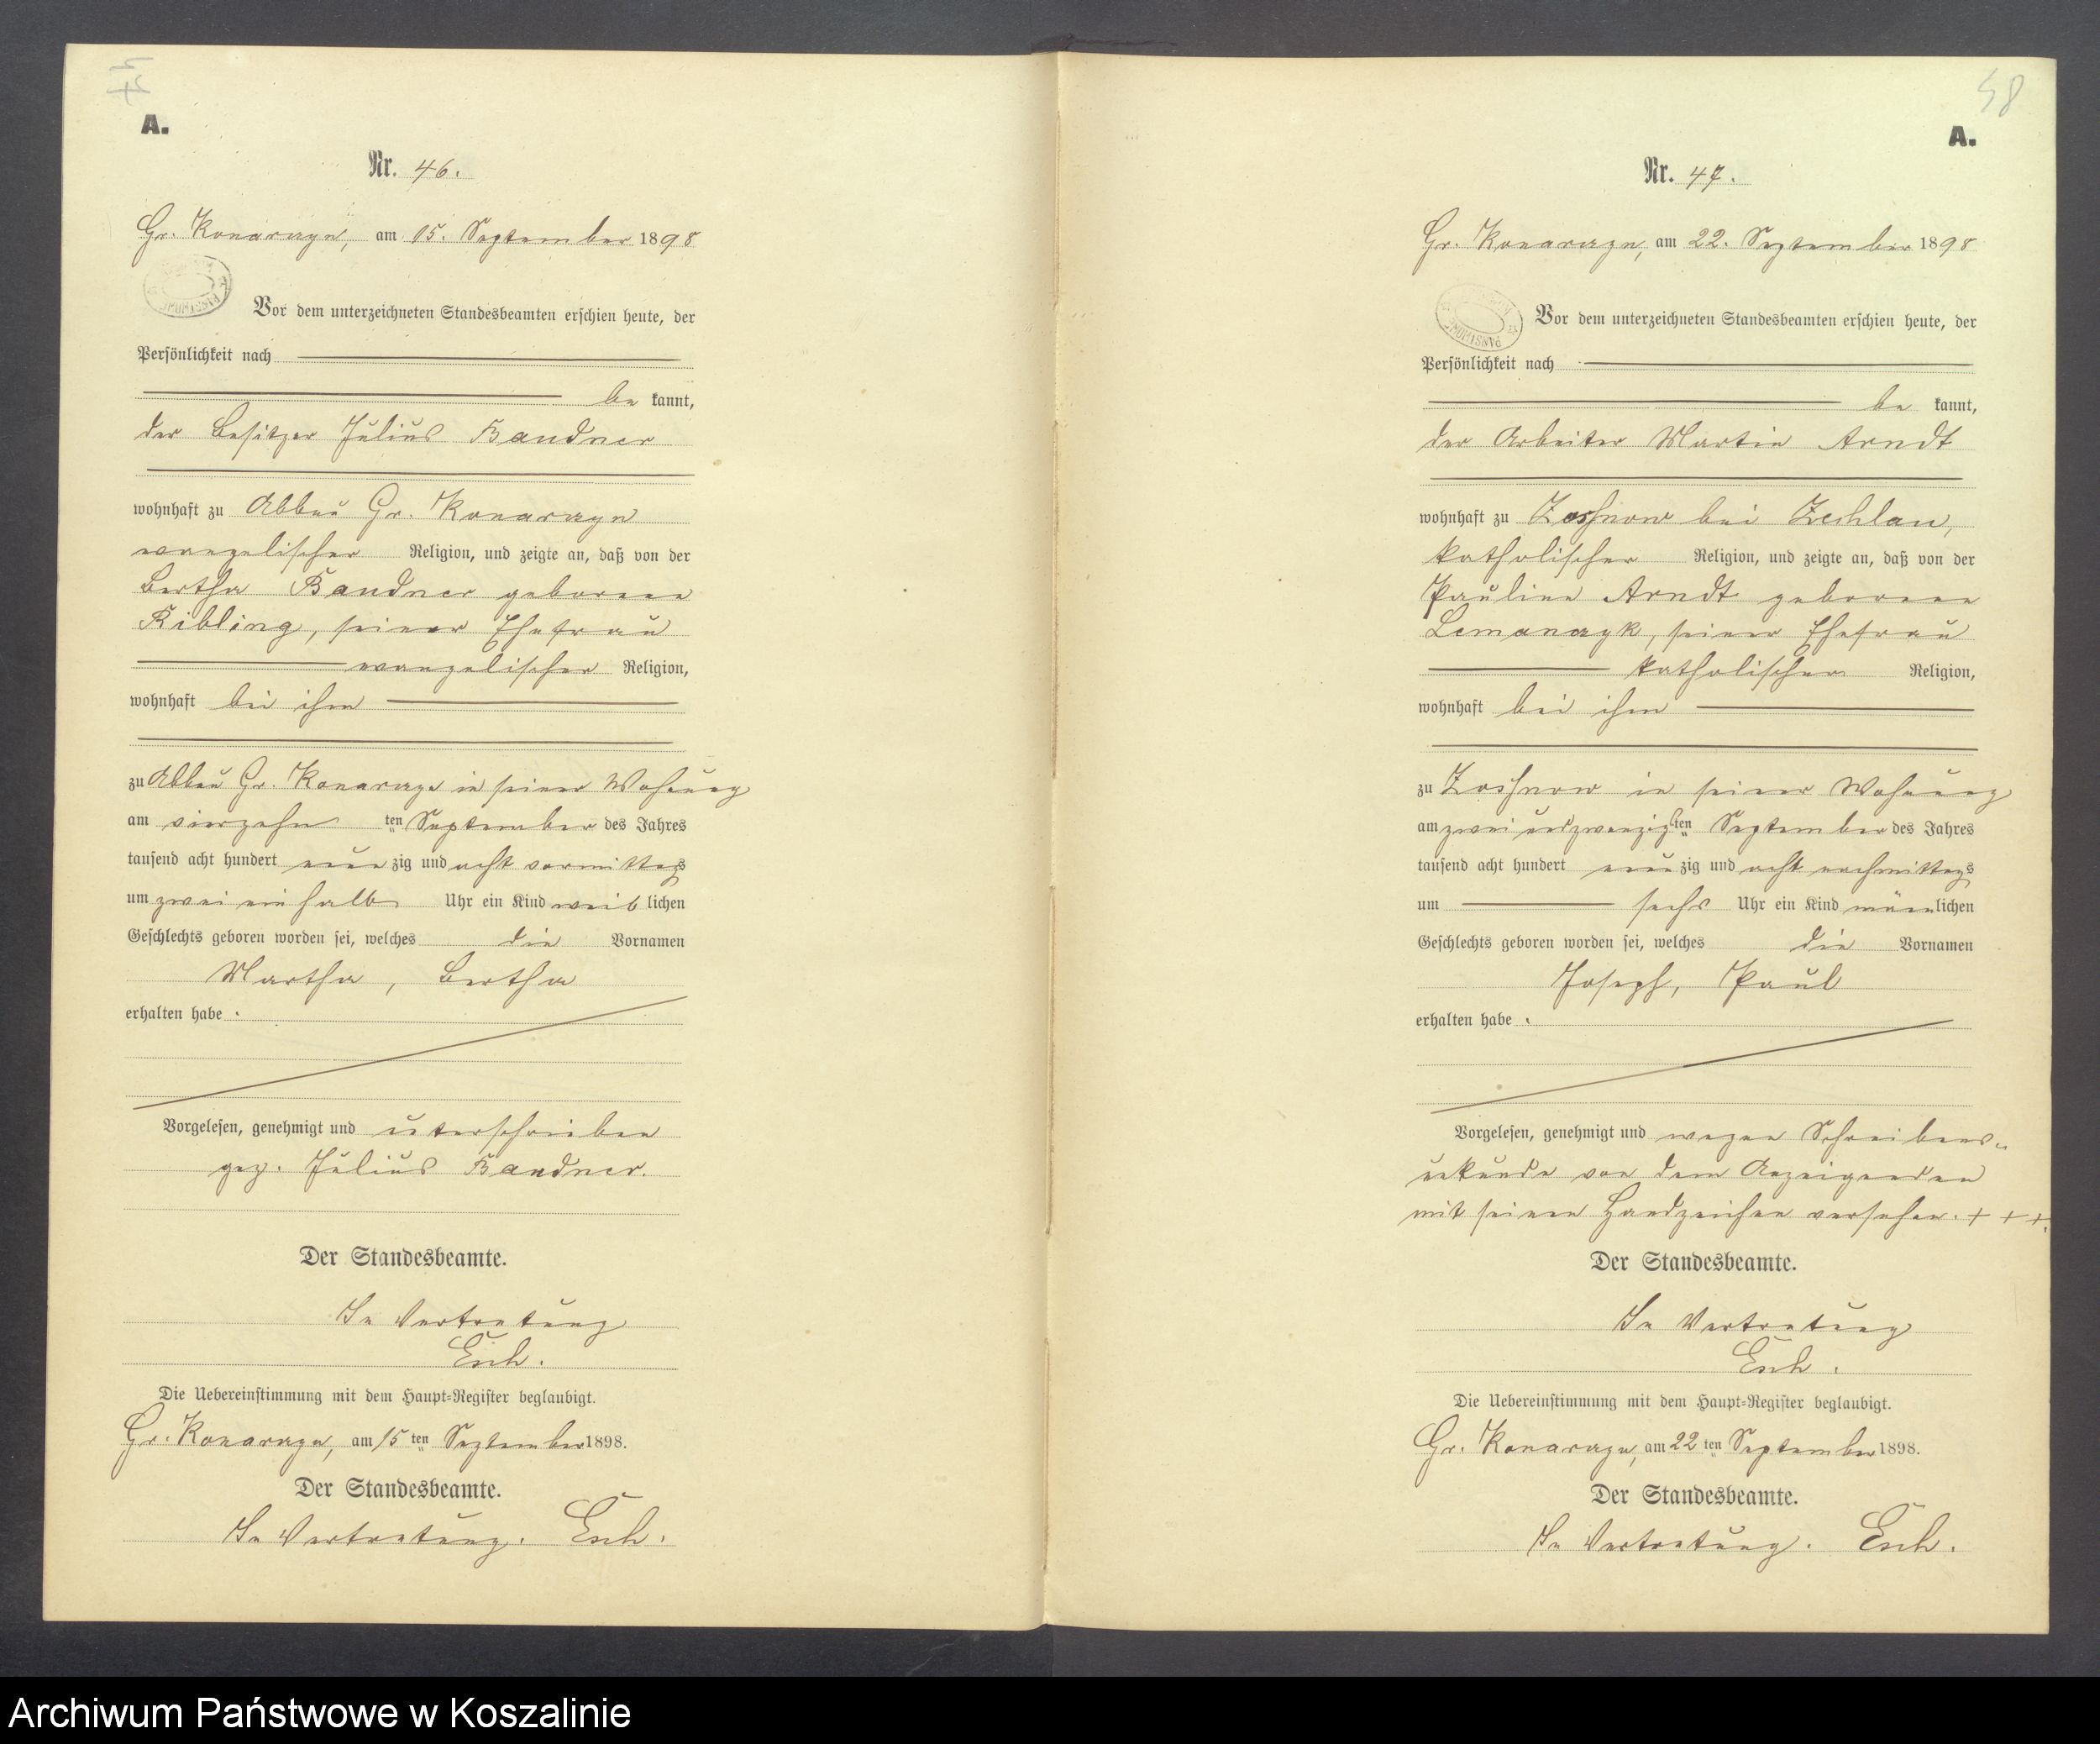 A.
Nr. 46.
Gr. Konarczyn, am 15. September 1898
Vor dem unterzeichneten Standesbeamten erschien heute, der
Persönlichkeit nach
be kannt,
der Besitzer Julius Bandner
wohnhaft zu Abbau Gr. Konarczyn
evangelischer Religion, und zeigte an, daß von der
Bertha Bandner geborene
Ribling, seiner Ehefrau
evangelischer Religion,
wohnhaft bei ihm
zu Abbau Gr. Konarczyn in seiner Wohnung
am vierzehn ten September des Jahres
tausend acht hundert neun zig und acht vormittags
um zwei ein halb Uhr ein Kind weib lichen
Geschlechts geboren worden sei, welches die Vornamen
Martha, Bertha
erhalten habe.
Vorgelesen, genehmigt und unterschrieben
gez. Julius Bandner.
Der Standesbeamte.
In Vertretung
Esch.
Die Uebereinstimmung mit dem Haupt-Register beglaubigt.
Gr. Konarczyn, am 15 ten September 1898.
Der Standesbeamte.
In Vertretung. Esch.
58
A.
Nr. 47.
Gr. Konarczyn, am 22. September 1898
Vor dem unterzeichneten Standesbeamten erschien heute, der
Persönlichkeit nach
be kannt,
der Arbeiter Martin Arndt
wohnhaft zu Zosznow bei Zechlau,
katholischer Religion, und zeigte an, daß von der
Pauline Arndt geborene
Lemanczyk, seiner Ehefrau
katholischer Religion,
wohnhaft bei ihm
zu Zosznow in seiner Wohnung
am zwei und zwanzigsten September des Jahres
tausend acht hundert neun zig und acht nachmittags
um sechs Uhr ein Kind männlichen
Geschlechts geboren worden sei, welches die Vornamen
Joseph, Paul
erhalten habe.
Vorgelesen, genehmigt und wegen Schreibens-
unkunde von dem Anzeigenden
mit seinen Handzeichen versehen. + + +.
Der Standesbeamte.
In Vertretung
Esch.
Die Uebereinstimmung mit dem Haupt-Register beglaubigt.
Gr. Konarczyn, am 22 ten September 1898.
Der Standesbeamte.
In Vertretung. Esch.
Archiwum Państwowe w Koszalinie